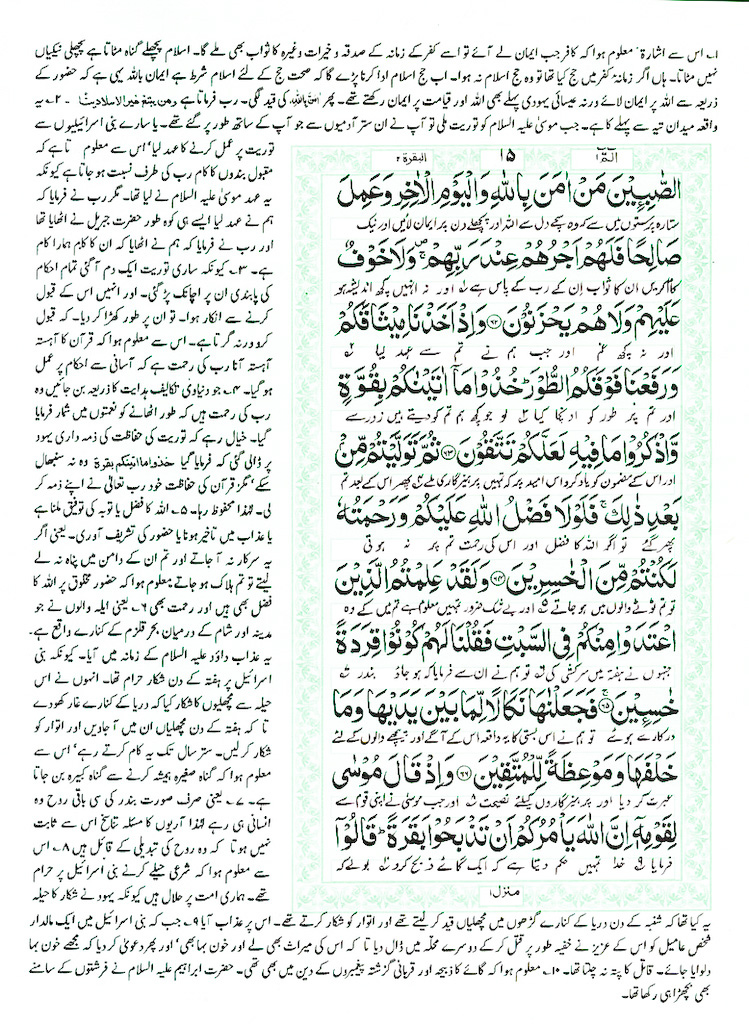 ۱۔ اس سے اشارۃً معلوم ہوا کہ کافر جب ایمان لے آئے تو اسے کفر کے زمانہ کے صدقہ و خیرات وغیرہ کا ثواب بھی ملے گا۔ اسلام پچھلے گناہ مٹاتا ہے پچھلی نیکیاں
نہیں مٹاتا۔ ہاں اگر زمانہ کفر میں حج کیا تھا تو وہ حج اسلام نہ ہوا۔ اب حج اسلام ادا کرنا پڑے گا کہ صحت حج کے لئے اسلام شرط ہے ایمان باللہ یہی ہے کہ حضور کے
ذریعہ سے اللہ پر ایمان لائے ورنہ عیسائی یہودی پہلے بھی اللہ اور قیامت پر ایمان رکھتے تھے۔ پھر اٰمن باللہ کی قید لگی۔ رب فرماتا ہے ومن یبتغ غیر الاسلام دینا ۔ ۲۔ یہ
واقعہ میدان تیہ سے پہلے کا ہے۔ جب موسیٰ علیہ السلام کو توریت ملی تو آپ نے ان ستر آدمیوں سے جو آپ کے ساتھ طور پر گئے تھے۔ یا سارے بنی اسرائیلیوں سے
الٓمّٓ۱ ۱۵ البقرۃ۲
الصّٰبِـِٕیْنَ مَنْ اٰمَنَ بِاللّٰهِ وَالْیَوْمِ الْاٰخِرِ وَعَمِلَ
ستارہ پرستوں میں سے کہ وہ سچے دل سے اللہ اور پچھلے دن پر ایمان لائیں اور نیک
صَالِحًا فَلَهُمْ اَجْرُهُمْ عِنْدَ رَبِّهِمْ ۚ وَلَا خَوْفٌ
کام کریں ان کا ثواب ان کے رب کے پاس ہے اور نہ انہیں کچھ اندیشہ ہو
عَلَیْهِمْ وَلَا هُمْ یَحْزَنُوْنَ ۝۶۲ وَاِذْ اَخَذْنَا مِیْثَاقَكُمْ
اور نہ کچھ غم اور جب ہم نے تم سے عہد لیا
وَرَفَعْنَا فَوْقَكُمُ الطُّوْرَ ؕ خُذُوْا مَاۤ اٰتَیْنٰكُمْ بِقُوَّةٍ
اور تم پر طور کو اونچا کیا لو جو کچھ ہم تم کو دیتے ہیں زور سے
وَّاذْكُرُوْا مَا فِیْهِ لَعَلَّكُمْ تَتَّقُوْنَ ۝۶۳ ثُمَّ تَوَلَّیْتُمْ مِّنْۢ
اور اس کے مضمون کو یاد کرو اس امید پر کہ تمہیں پرہیزگاری ملے پھر اس کے بعد تم
بَعْدِ ذٰلِكَ ۚ فَلَوْلَا فَضْلُ اللّٰهِ عَلَیْكُمْ وَرَحْمَتُهٗ
پھر گئے تو اگر اللہ کا فضل اور اس کی رحمت تم پر نہ ہوتی
لَكُنْتُمْ مِّنَ الْخٰسِرِیْنَ ۝۶۴ وَلَقَدْ عَلِمْتُمُ الَّذِیْنَ
تو تم ٹوٹے والوں میں ہو جاتے اور بے شک ضرور تمہیں معلوم ہے تم میں کے وہ
اعْتَدَوْا مِنْكُمْ فِی السَّبْتِ فَقُلْنَا لَهُمْ كُوْنُوْا قِرَدَةً
جنہوں نے ہفتہ میں سرکشی کی تو ہم نے ان سے فرمایا کہ ہو جاؤ بندر
خٰسِـِٕیْنَ ۝۶۵ فَجَعَلْنٰهَا نَكَالًا لِّمَا بَیْنَ یَدَیْهَا وَمَا
دھتکارے ہوئے تو ہم نے اس بستی کا یہ واقعہ اس کے آگے اور پیچھے والوں کے لئے
خَلْفَهَا وَمَوْعِظَةً لِّلْمُتَّقِیْنَ ۝۶۶ وَاِذْ قَالَ مُوْسٰی
عبرت کر دیا اور پرہیزگاروں کیلئے نصیحت اور جب موسیٰ نے اپنی قوم سے
لِقَوْمِهٖۤ اِنَّ اللّٰهَ یَاْمُرُكُمْ اَنْ تَذْبَحُوْا بَقَرَةً ؕ قَالُوْۤا
فرمایا خدا تمہیں حکم دیتا ہے کہ ایک گائے ذبح کرو بولے کہ
منزل۱
توریت پر عمل کرنے کا عہد لیا‘ اس سے معلوم ہوتا ہے کہ
مقبول بندوں کا کام رب کی طرف نسبت ہو جاتا ہے کیونکہ
یہ عہد موسیٰ علیہ السلام نے لیا تھا۔ مگر رب نے فرمایا کہ
ہم نے عہد لیا ایسے ہی کوہ طور حضرت جبریل نے اٹھایا تھا
اور رب نے فرمایا کہ ہم نے اٹھایا کہ ان کا کام ہمارا کام
ہے۔ ۳۔ کیونکہ ساری توریت ایک دم آ گئی تمام احکام
کی پابندی ان پر اچانک پڑ گئی۔ اور انہیں اس کے قبول
کرنے سے انکار ہوا۔ تو ان پر طور کھڑا کر دیا۔ کہ قبول
کرو ورنہ گرتا ہے۔ اس سے معلوم ہوا کہ قرآن کا آہستہ
آہستہ آنا رب کی رحمت ہے کہ آسانی سے احکام پر عمل
ہو گیا۔ ۴۔ جو دنیاوی تکالیف ہدایت کا ذریعہ بن جائیں وہ
رب کی رحمت ہیں کہ طور اٹھانے کو نعمتوں میں شمار فرمایا
گیا۔ خیال رہے کہ توریت کی حفاظت کی ذمہ داری یہود
پر ڈالی گئی کہ فرمایا گیا خذوا ما اتینکم بقوۃ وہ نہ سنبھال
سکے مگر قرآن کی حفاظت خود رب تعالیٰ نے اپنے ذمہ کر
لی۔ لہٰذا محفوظ رہا۔ ۵۔ اللہ کا فضل یا توبہ کی توفیق ملنا ہے
یا عذاب میں تاخیر ہونا یا حضور کی تشریف آوری۔ یعنی اگر
یہ سرکار نہ آ جاتے اور تم ان کے دامن میں پناہ نہ لے
لیتے تو تم ہلاک ہو جاتے معلوم ہوا کہ حضور مخلوق پر اللہ کا
فضل بھی ہیں اور رحمت بھی ۶۔ یعنی ایلہ والوں نے جو
مدینہ اور شام کے درمیان بحر قلزم کے کنارے واقع ہے۔
یہ عذاب داؤد علیہ السلام کے زمانہ میں آیا۔ کیونکہ بنی
اسرائیل پر ہفتہ کے دن شکار حرام تھا۔ انہوں نے اس
حیلہ سے مچھلیوں کا شکار کیا کہ دریا کے کنارے غار کھودے
تا کہ ہفتہ کے دن مچھلیاں ان میں آ جاویں اور اتوار کو
شکار کر لیں۔ ستر سال تک یہ کام کرتے رہے‘ اس سے
معلوم ہوا کہ گناہ صغیرہ ہمیشہ کرنے سے گناہ کبیرہ بن جاتا
ہے۔ ۷۔ یعنی صرف صورت بندر کی سی باقی روح وہ
انسانی ہی رہے لہٰذا آریوں کا مسئلہ تناسخ اس سے ثابت
نہیں ہوتا کہ وہ روح کی تبدیلی کے قائل ہیں ۸۔ اس
سے معلوم ہوا کہ شرعی حیلے کرنے بنی اسرائیل پر حرام
تھے۔ ہماری امت پر حلال ہیں کیونکہ یہود نے شکار کا حیلہ
یہ کیا تھا کہ شنبہ کے دن دریا کے کنارے گڑھوں میں مچھلیاں قید کر لیتے تھے اور اتوار کو شکار کرتے تھے۔ اس پر عذاب آیا ۹۔ جب کہ بنی اسرائیل میں ایک مالدار
شخص عامیل کو اس کے عزیز نے خفیہ طور پر قتل کر کے دوسرے محلّہ میں ڈال دیا تا کہ اس کی میراث بھی لے اور خون بہا بھی‘ اور پھر دعویٰ کر دیا کہ مجھے خون بہا
دلوایا جائے۔ قاتل کا پتہ نہ چلتا تھا۔ ۱۰۔ معلوم ہوا کہ گائے کا ذبیحہ اور قربانی گزشتہ پیغمبروں کے دین میں بھی تھی۔ حضرت ابراہیم علیہ السلام نے فرشتوں کے سامنے
بھی بچھڑا ہی رکھا تھا۔